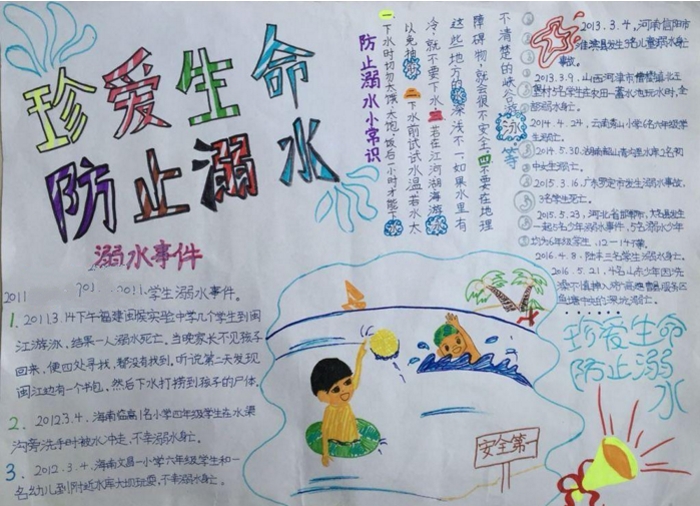 珍爱生命
防止溺水
溺水事件
2011
学生溺水事件。
1. 14下午福建闽侯实验中学几个学生到闽
江游泳，结果一人溺水死亡。当晚家长不见孩子
回来，便四处寻找，都没有找到。听说第二天发现
闽江边有一个书包，然后下水打捞到孩子的尸体。
2. 2012.3.4.海南临高1名小学四年级学生在水渠
沟旁洗手时被水冲走，不幸溺水身亡。
3. 2012.3.4.海南文昌一小学六年级学生和一
名幼儿到附近水库大坝玩耍，不幸溺水身亡。
防止溺水小常识
一.下水时切勿太饿、太饱。饭后一小时才能下
以免抽 二.下水前试试水温，若水太
冷，就不要下水。三.若在江河湖海游
这些地方的 深浅不一，如果水里有
障碍物，就会很不安全。四.不要在地理
不清楚的峡谷游泳等
2013.3.4，河南信阳市
淮滨县发生 名儿童溺水身亡
事故。
2013.3.9，山西河津市僧楼镇北王
堡村5名学生在农田一蓄水池玩水时，全
部溺水身亡。
2014.4.24，云南 山小学6名六年级学
生溺亡。
2014.5.30.湖南韶山 内里水库2名初
中女生溺亡。
2015.3.16，广东罗定市发生溺水事故，
3名学生死亡。
2015.5.23，河北省邯郸市，大名县发生
一起5名少年溺水事件，5名溺水少年
均为6年级学生，12—14岁。
2016.4.8，陆丰三名学生溺水身亡。
2016.5.21，4名山东少年因洗
澡不慎 入 服务区
鱼塘中央的深坑溺亡。
珍爱生命
防止溺
水
安全第一